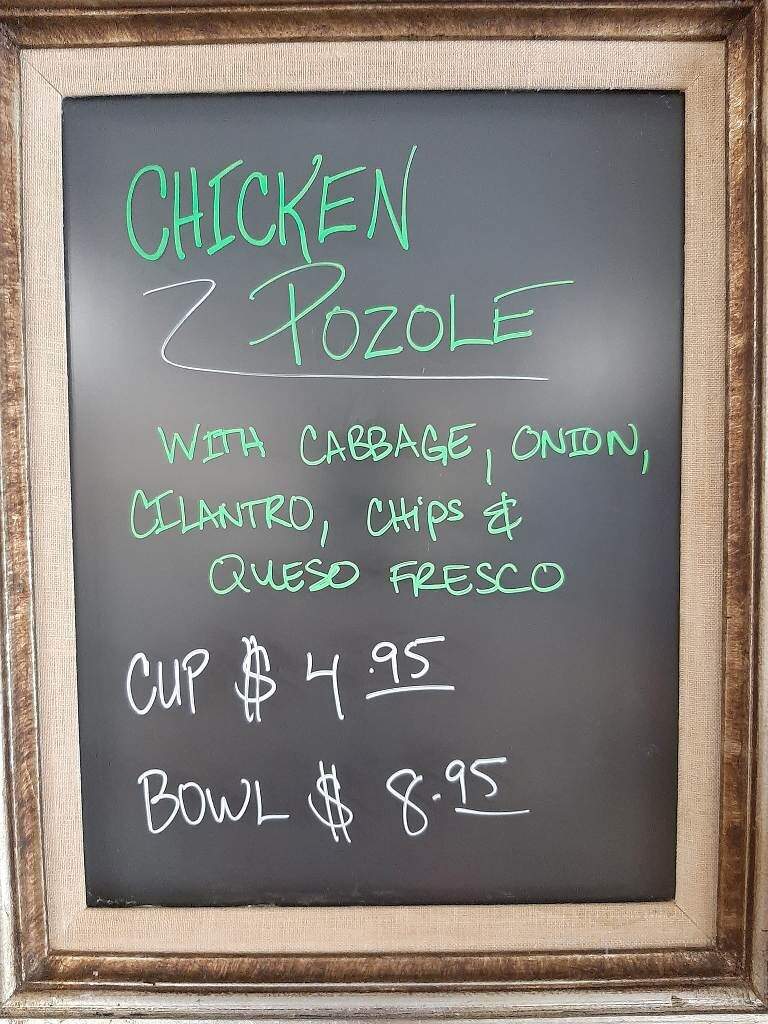 CHICKEN
POZOLE
WITH CABBAGE, ONION,
CILANTRO, CHiPS &
QUESO FRESCO
CUP $ 4.95
BOWL $ 8.95